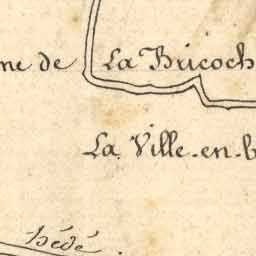 ne de La Bricoch
La Ville-en-b
hédé.